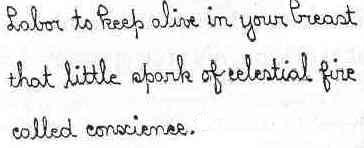 Labor to keep alive in your breast
that little spark of celestial fire
called conscience.